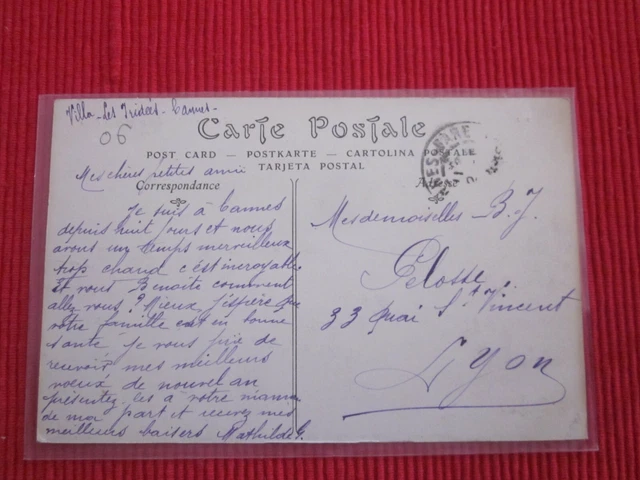 Villa - Les Iridées - Cannes -
06
Carte Postale
POST CARD — POSTKARTE — CARTOLINA POSTALE
TARJETA POSTAL
Mes chères petites amies
Correspondance
Je suis à Cannes
depuis huit jours et nous
avons un temps merveilleux
trop chaud c'est incroyable
Et vous Benoite comment
allez vous? Mieux j'espère que
votre famille est en bonne
sante je vous prie de
recevoir mes meilleurs
voeux de nouvel an
présentez les à votre maman
de ma part et recevez mes
meilleurs baisers Mathilde G.
Mesdemoiselles B. J.
Pelosse
33 Quai St Vincent
Lyon